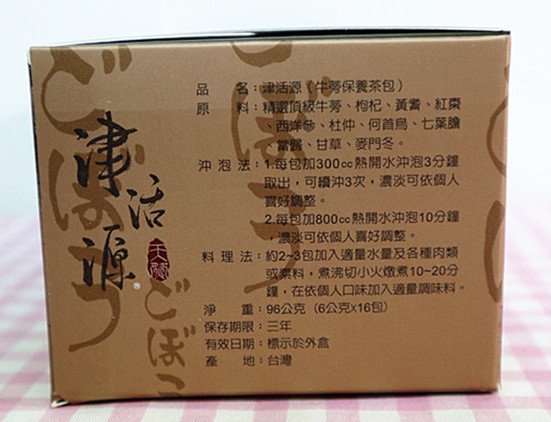 品　　名：津活源（牛蒡保養茶包）
原　　料：精選頂級牛蒡、枸杞、黃耆、紅棗
、西洋參、杜仲、何首烏、七葉膽
、當歸、甘草、麥門冬。
沖 泡 法：1.每包加300cc熱開水沖泡3分鐘
取出，可續沖3次，濃淡可依個人
喜好調整。
2.每包加800cc熱開水沖泡10分鐘
，濃淡可依個人喜好調整。
料 理 法：約2~3包加入適量水量及各種肉類
或素料，煮沸切小火燉煮10~20分
鐘，在依個人口味加入適量調味料。
淨　　重：96公克（6公克x16包）
保存期限：三年
有效日期：標示於外盒
產　　地：台灣
津活源
天賦
®
ごぼう
ごぼう
ごぼう